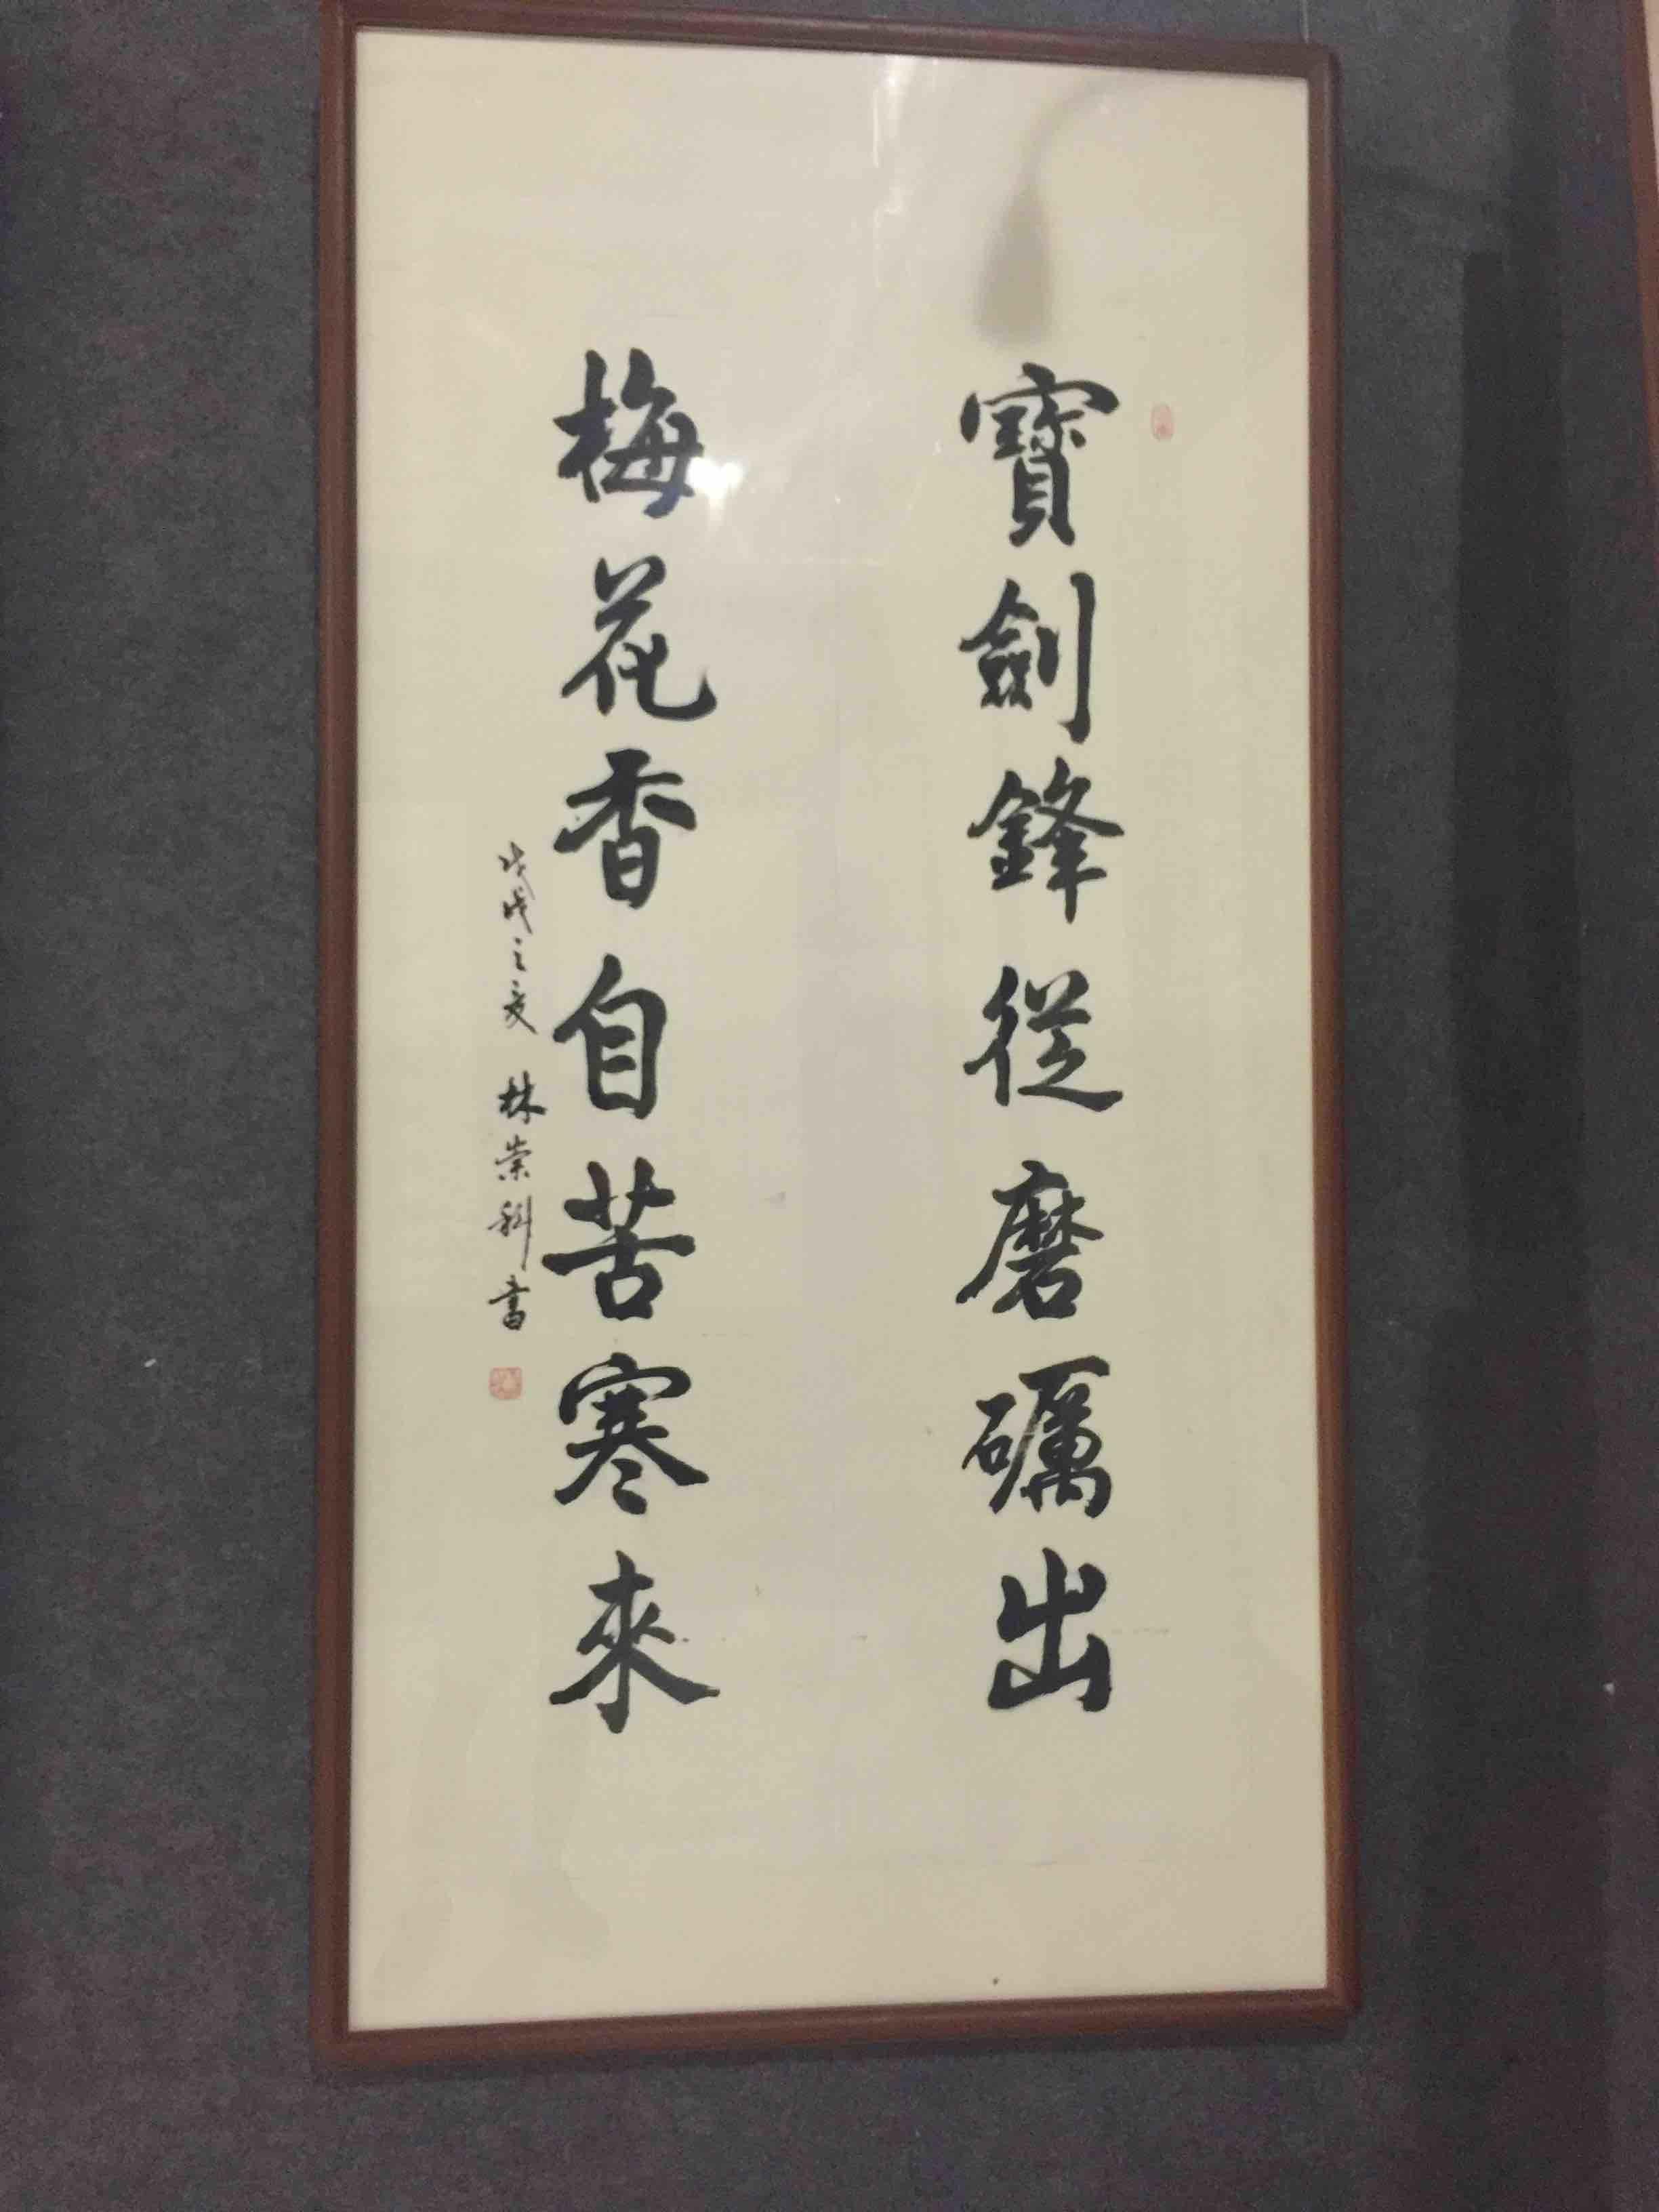 寶劍鋒從磨礪出
梅花香自苦寒來
戊戌之夏 林崇科書